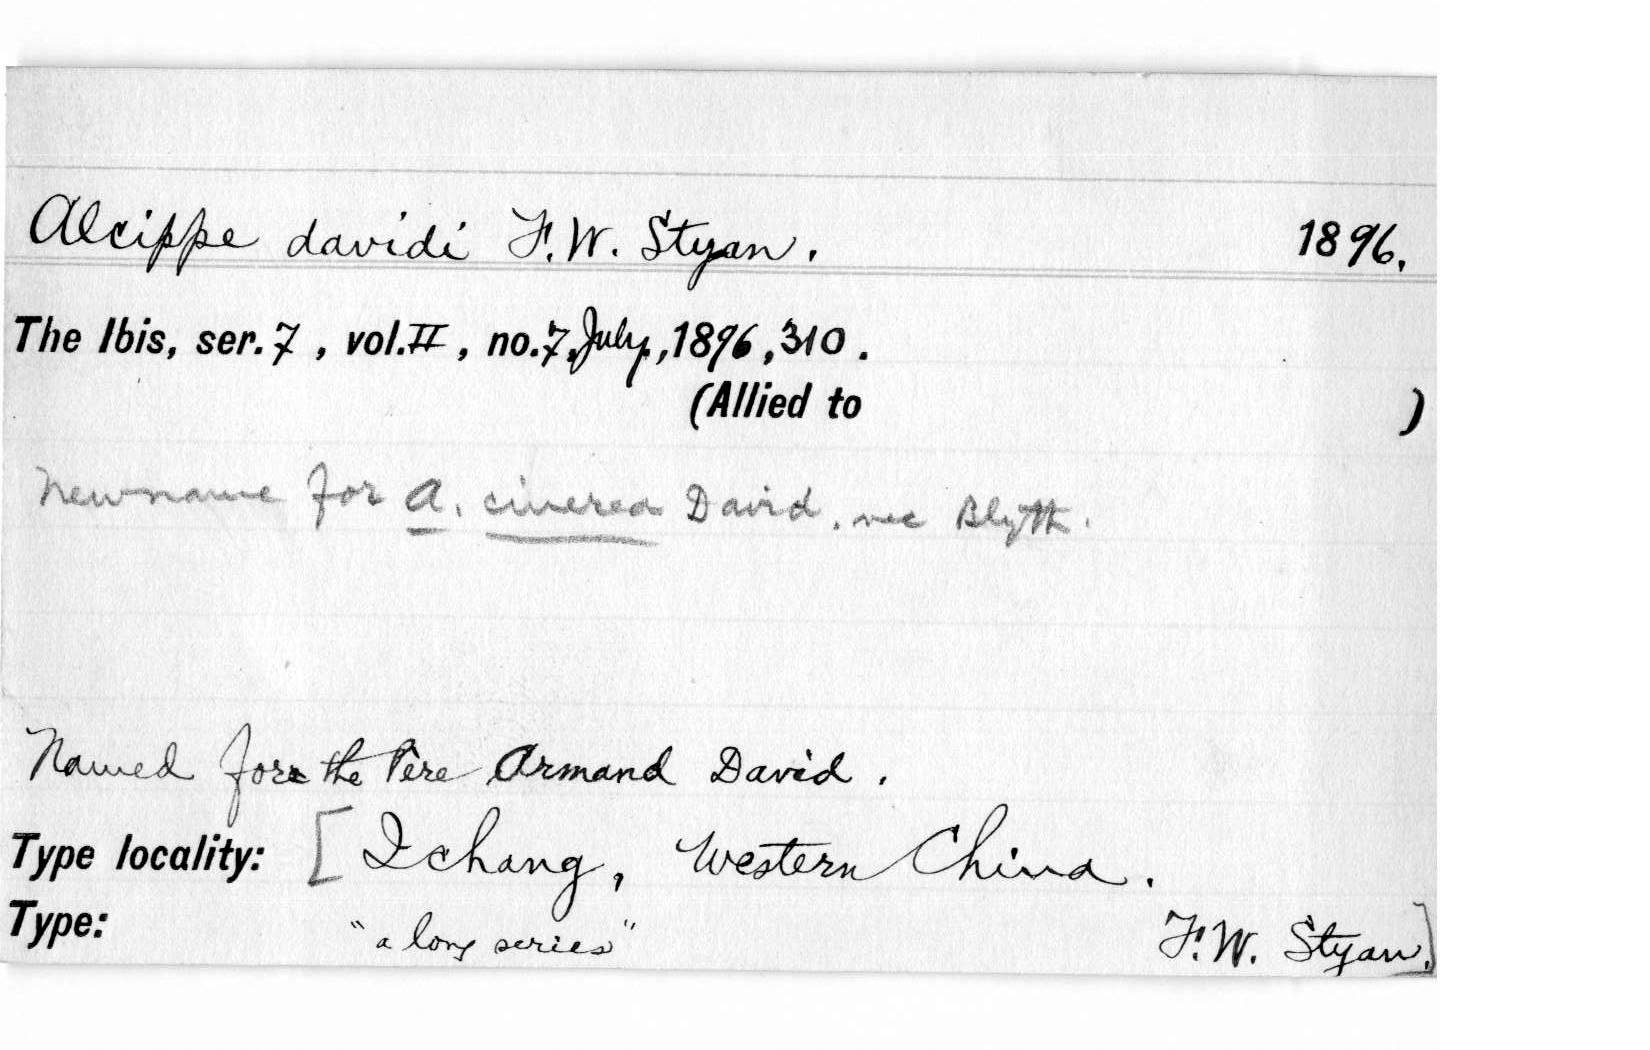 Alcippe davidi F. W. Styan. 1896.
The Ibis, ser. 7, vol. II, no. 7, July, 1896, 310.
(Allied to )
New name for A. cinerea David, nec Blyth.
Named for the Père Armand David.
Type locality: [Ichang, Western China.
Type: "a long series" F. W. Styan.]